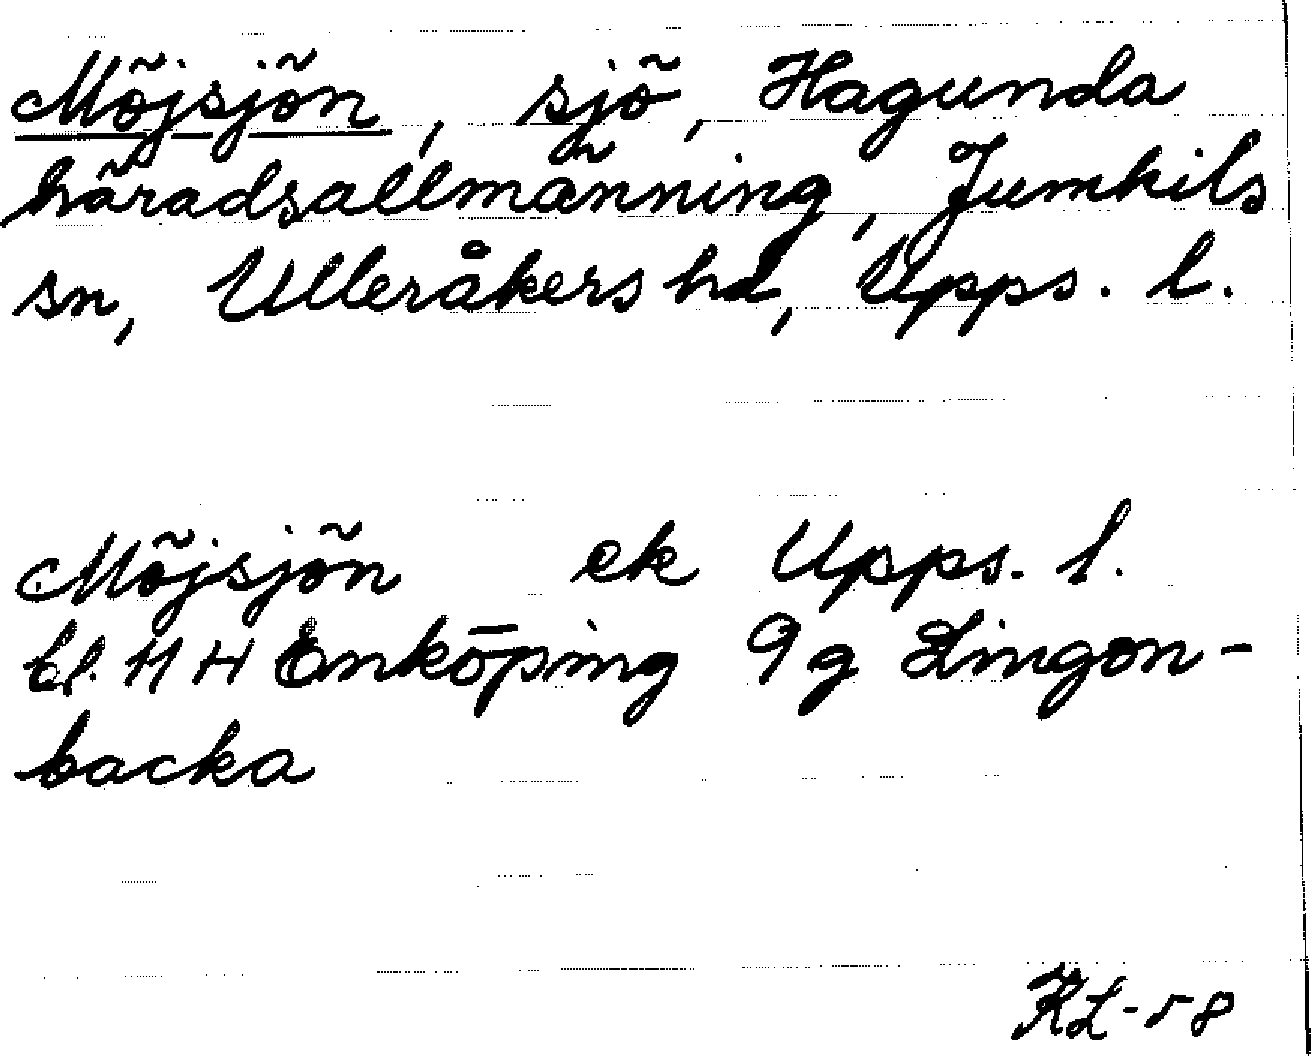 Möjsjön, sjö, Hagunda
häradsallmänning, Jumkils
sn, Ulleråkers hd, Upps. l.
Möjsjön ek Upps. l.
bl. 11 H Enköping 9 g Lingon-
backa
KL-58